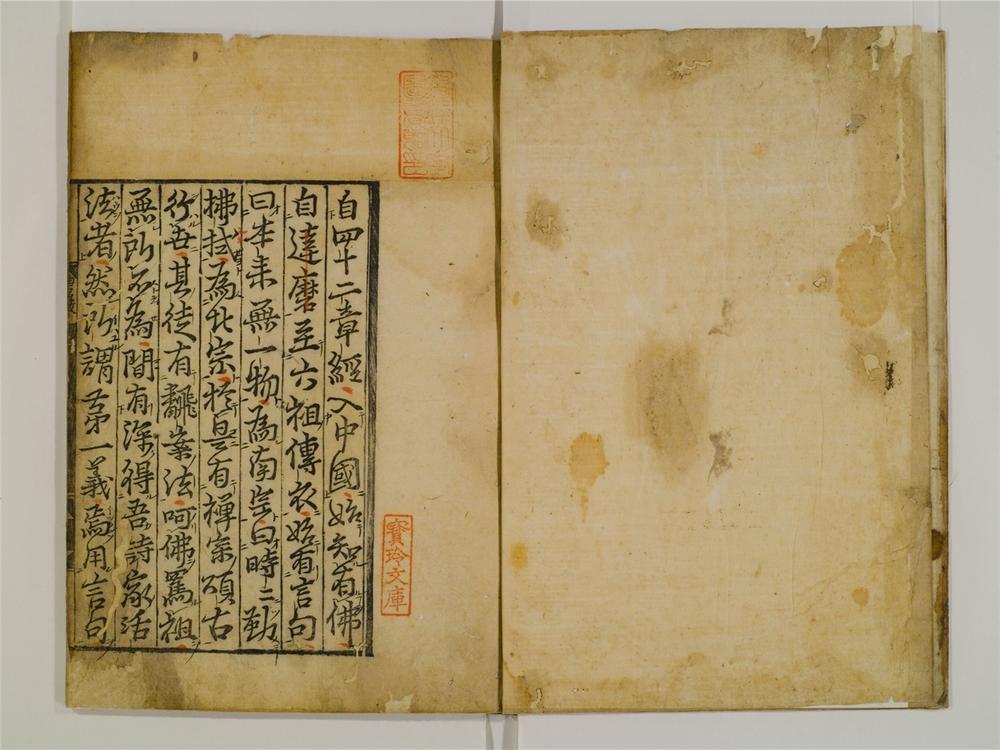 自四十二章經入中國始知有佛
自達磨至六祖傳衣始有言句
曰本来無一物為南宗曰時〻勤
拂拭為北宗於是有禅宗頌古
行世其徒有飜案法呵佛罵祖
無所不為間有深得吾詩家活
法者然所謂第一義焉用言句
寶玲文庫